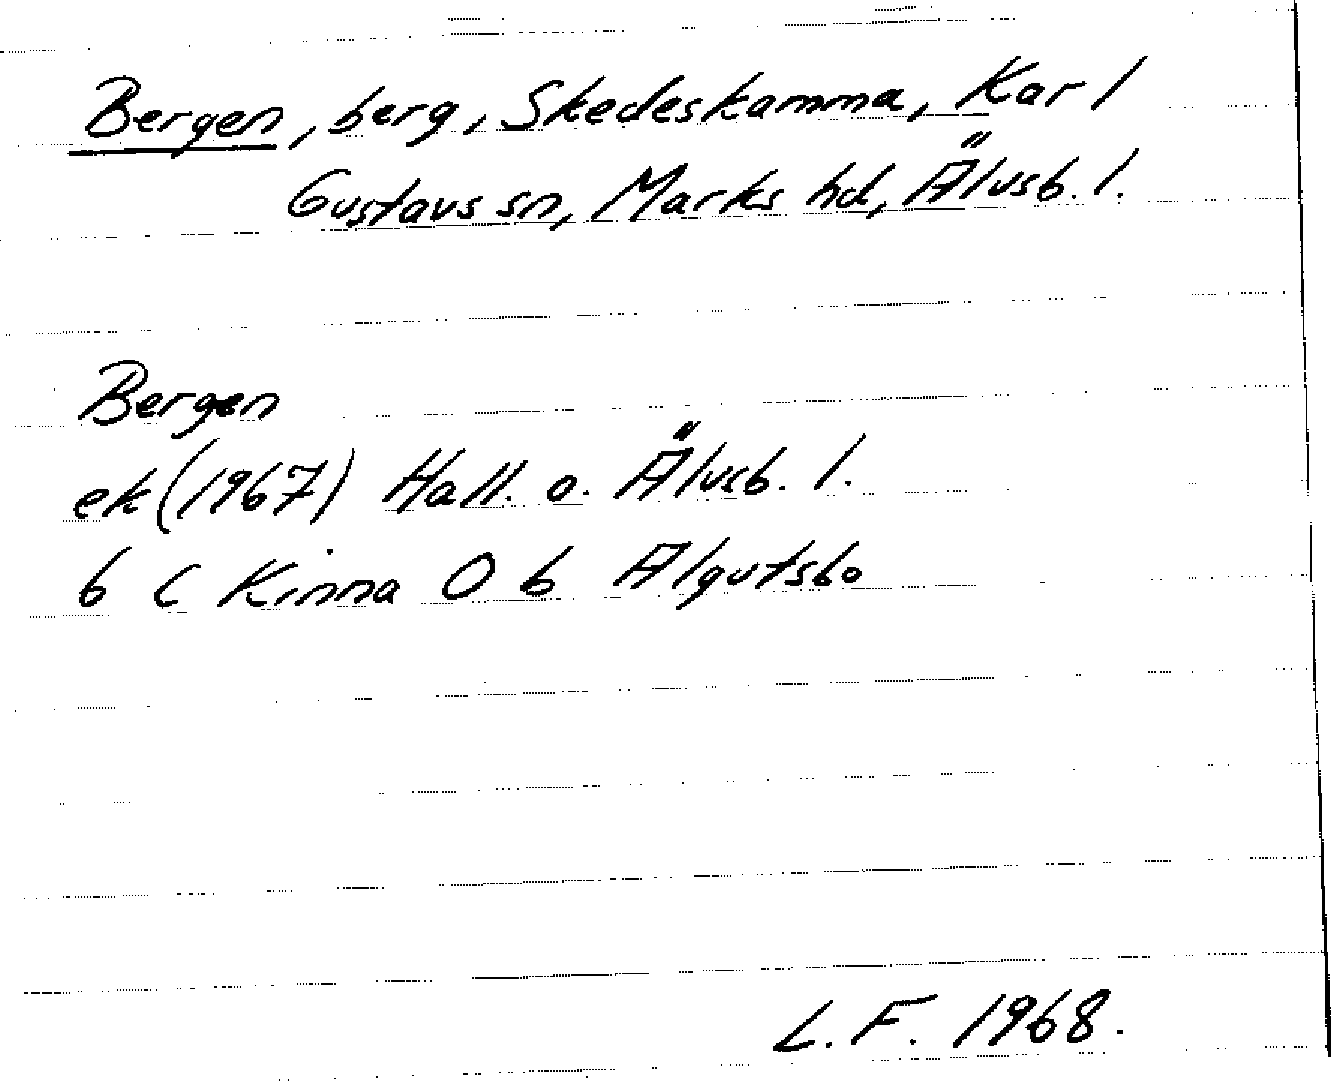 Bergen, berg, Skedeskamma, Karl
Gustavs sn, Marks hd, Älvsb. l.
Bergen
ek (1967) Hall. o. Älvsb. l.
6 C Kinna O b Algutsbo
L. F. 1968.